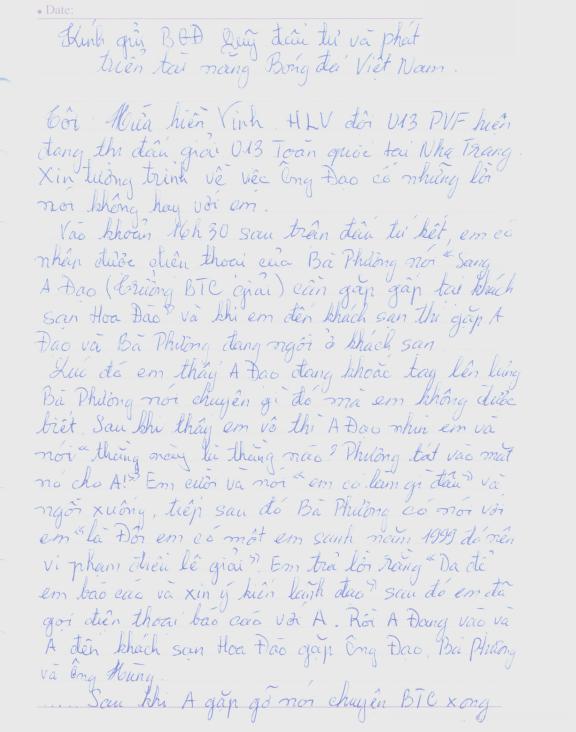 • Date:
Kính gửi BGĐ Quỹ đầu tư và phát
triển tài năng Bóng đá Việt Nam.
Tôi Hứa hiền Vinh HLV đội U13 PVF hiện
đang thi đấu giải U13 Toàn quốc tại Nha Trang.
Xin tường trình về việc Ông Đạo có những lời
nói không hay với em.
Vào khoản 16h30 sau trận đấu tứ kết, em có
nhận được điện thoại của Bà Phường nói "Sang
A Đạo (trưởng BTC giải) cần gặp gấp tại khách
sạn Hoa Đào" và khi em đến khách sạn thì gặp A
Đạo và Bà Phường đang ngồi ở khách sạn
Lúc đó em thấy A Đạo đang khoác tay lên lưng
Bà Phường nói chuyện gì đó mà em không được
biết. Sau khi thấy em vô thì A Đạo nhìn em và
nói "thằng này là thằng nào? Phường tát vào mặt
nó cho A!" Em cười và nói "em có làm gì đâu" và
ngồi xuống, tiếp sau đó Bà Phường có nói với
em "là Đội em có một em sanh năm 1999 đó nên
vi phạm điều lệ giải". Em trả lời rằng "Dạ để
em báo cáo và xin ý kiến lãnh đạo" sau đó em đã
gọi điện thoại báo cáo với A. Rồi A Đang vào và
A đến khách sạn Hoa Đào gặp Ông Đạo, Bà Phường
và Ông Hùng.
..... Sau khi A gặp gỡ nói chuyện BTC xong